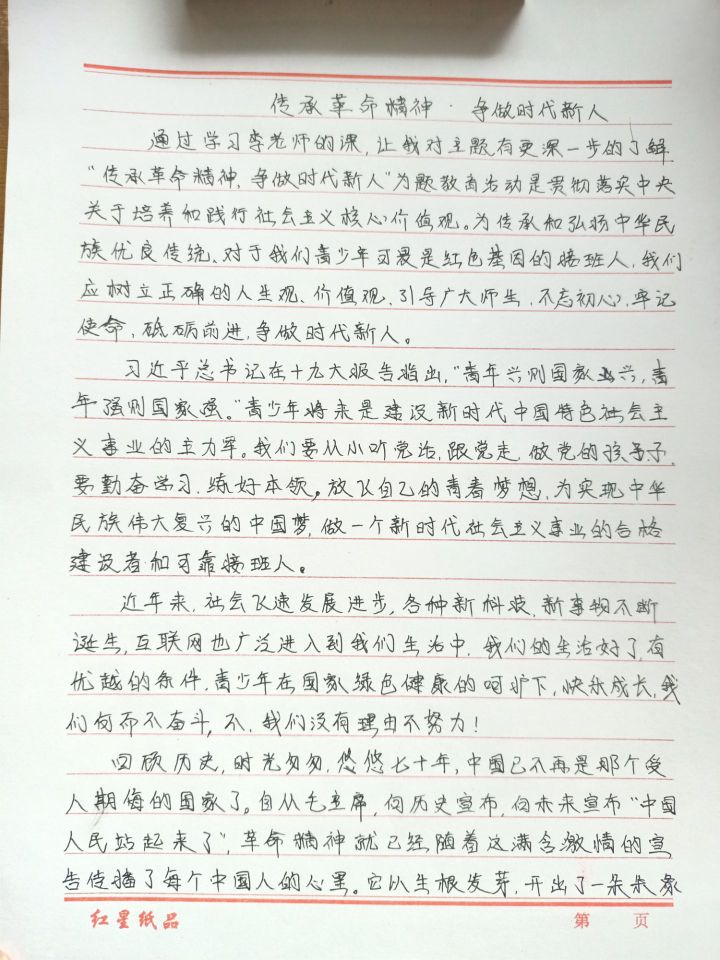 传承革命精神·争做时代新人
通过学习李老师的课,让我对主题有更深一步的了解
“传承革命精神,争做时代新人”为题教育活动是贯彻落实中央
关于培养和践行社会主义核心价值观。为传承和弘扬中华民
族优良传统、对于我们青少年可畏是红色基因的接班人,我们
应树立正确的人生观、价值观,引导广大师生,不忘初心,牢记
使命,砥砺前进,争做时代新人。
习近平总书记在十九大报告指出,“青年兴则国家兴,青
年强则国家强。”青少年将来是建设新时代中国特色社会主
义事业的主力军。我们要从小听党话,跟党走,做党的孩子,
要勤奋学习,练好本领。放飞自己的青春梦想,为实现中华
民族伟大复兴的中国梦,做一个新时代社会主义事业的合格
建设者和可靠接班人。
近年来,社会飞速发展进步,各种新科技,新事物不断
诞生,互联网也广泛进入到我们生活中,我们的生活好了,有
优越的条件,青少年在国家绿色健康的呵护下,快乐成长,我
们何而不奋斗,不,我们没有理由不努力!
回顾历史,时光匆匆,悠悠七十年,中国已不再是那个受
人期侮的国家了。自从毛主席,向历史宣布,向未来宣布“中国
人民站起来了”,革命精神就已经随着这满含激情的宣
告传播了每个中国人的心里。它以生根发芽,开出了一朵朵象
红星纸品
第 页